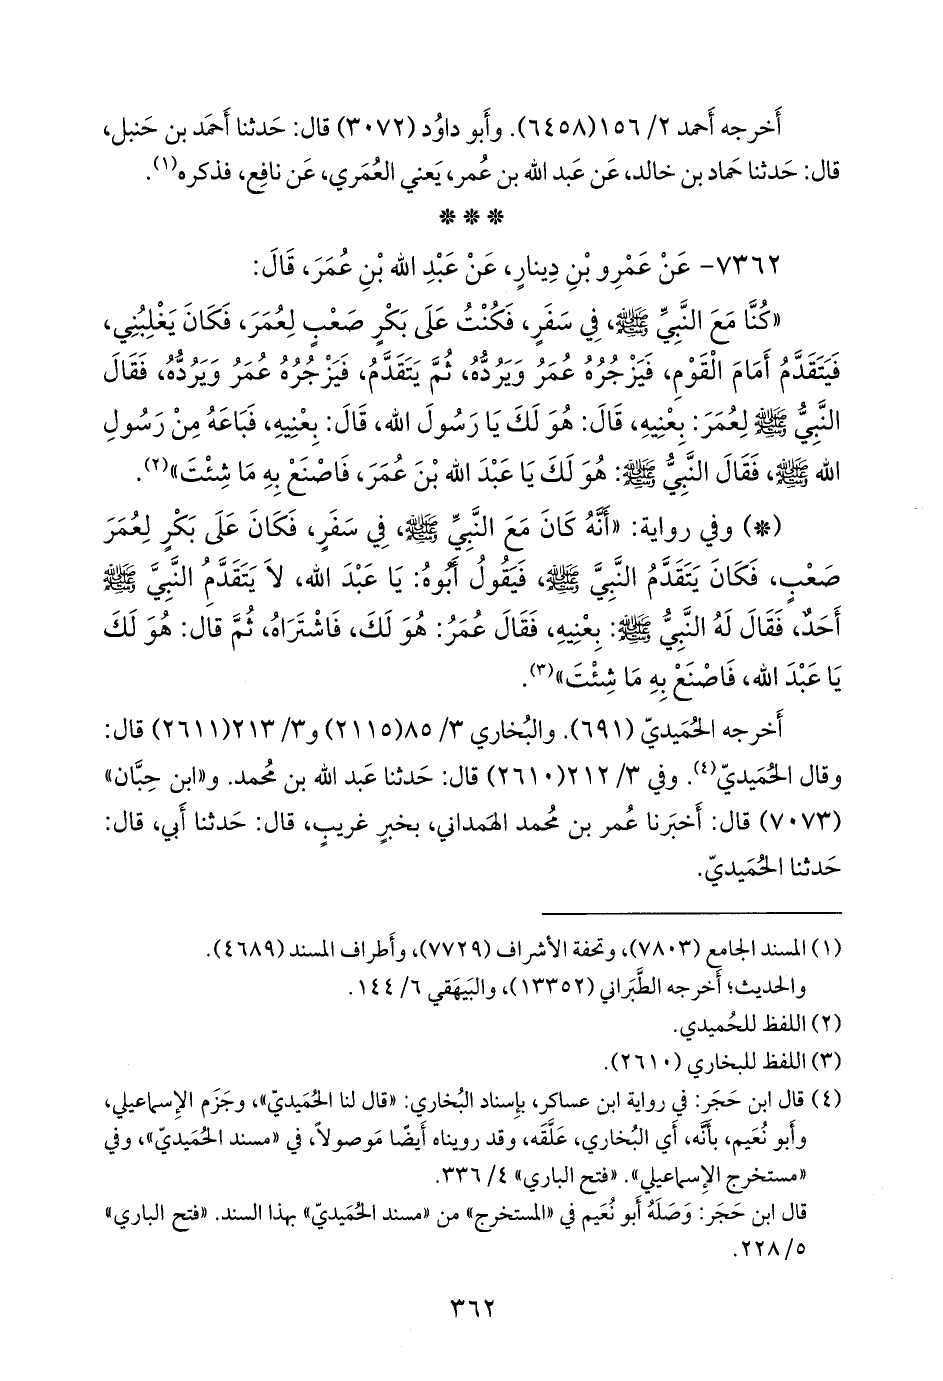 أَخرجه أَحمد ٢/ ١٥٦(٦٤٥٨). وأَبو داوُد (٣٠٧٢) قال: حَدثنا أَحمَد بن حَنبل،
قال: حَدثنا حَماد بن خالد، عَن عَبد الله بن عُمر، يَعني العُمَري، عَن نافِع، فذكره(١).
* * *
٧٣٦٢- عَنْ عَمْرِو بْنِ دِينارٍ، عَنْ عَبْدِ الله بْنِ عُمَرَ، قَالَ:
«كُنَّا مَعَ النَّبِيِّ ﷺ، فِي سَفَرٍ، فَكُنْتُ عَلَى بَكْرٍ صَعْبٍ لِعُمَرَ، فَكَانَ يَغْلِبُنِي،
فَيَتَقَدَّمُ أَمَامَ الْقَوْمِ، فَيَزْجُرُهُ عُمَرُ وَيَرُدُّهُ، ثُمَّ يَتَقَدَّمُ، فَيَزْجُرُهُ عُمَرُ وَيَرُدُّهُ، فَقَالَ
النَّبِيُّ ﷺ لِعُمَرَ: بِعْنِيهِ، قَالَ: هُوَ لَكَ يَا رَسُولَ الله، قَالَ: بِعْنِيهِ، فَبَاعَهُ مِنْ رَسُولِ
الله ﷺ، فَقَالَ النَّبِيُّ ﷺ: هُوَ لَكَ يَا عَبْدَ الله بْنَ عُمَرَ، فَاصْنَعْ بِهِ مَا شِئْتَ»(٢).
(*) وفي رواية: «أَنَّهُ كَانَ مَعَ النَّبِيِّ ﷺ، فِي سَفَرٍ، فَكَانَ عَلَى بَكْرٍ لِعُمَرَ
صَعْبٍ، فَكَانَ يَتَقَدَّمُ النَّبِيَّ ﷺ، فَيَقُولُ أَبُوهُ: يَا عَبْدَ الله، لاَ يَتَقَدَّمُ النَّبِيَّ ﷺ
أَحَدٌ، فَقَالَ لَهُ النَّبِيُّ ﷺ: بِعْنِيهِ، فَقَالَ عُمَرُ: هُوَ لَكَ، فَاشْتَرَاهُ، ثُمَّ قال: هُوَ لَكَ
يَا عَبْدَ الله، فَاصْنَعْ بِهِ مَا شِئْتَ»(٣).
أَخرجه الحُمَيديّ (٦٩١). والبُخاري ٣/ ٨٥(٢١١٥) و٣/ ٢١٣(٢٦١١) قال:
وقال الحُمَيديّ(٤). وفي ٣/ ٢١٢(٢٦١٠) قال: حَدثنا عَبد الله بن مُحمد. و«ابن حِبَّان»
(٧٠٧٣) قال: أَخبَرنا عُمر بن مُحمد الهَمداني، بخبرٍ غريبٍ، قال: حَدثنا أَبي، قال:
حَدثنا الحُمَيديّ.
(١) المسند الجامع (٧٨٠٣)، وتحفة الأشراف (٧٧٢٩)، وأَطراف المسند (٤٦٨٩).
والحديث؛ أَخرجه الطَّبَراني (١٣٣٥٢)، والبَيهَقي ٦/ ١٤٤.
(٢) اللفظ للحُميدي.
(٣) اللفظ للبخاري (٢٦١٠).
(٤) قال ابن حَجَر: في رواية ابن عساكر، بإِسناد البُخاري: «قال لنا الحُمَيديّ»، وجَزَم الإِسماعيلي،
وأَبو نُعَيم، بأَنَّه، أَي البُخاري، عَلَّقَه، وقد رويناه أَيضًا مَوصولاً، في «مسند الحُمَيديّ»، وفي
«مستخرج الإِسماعيلي». «فتح الباري» ٤/ ٣٣٦.
قال ابن حَجَر: وَصَلَهُ أَبو نُعَيم في «المستخرج» من «مسند الحُمَيديّ» بهذا السند. «فتح الباري»
٥/ ٢٢٨.
٣٦٢